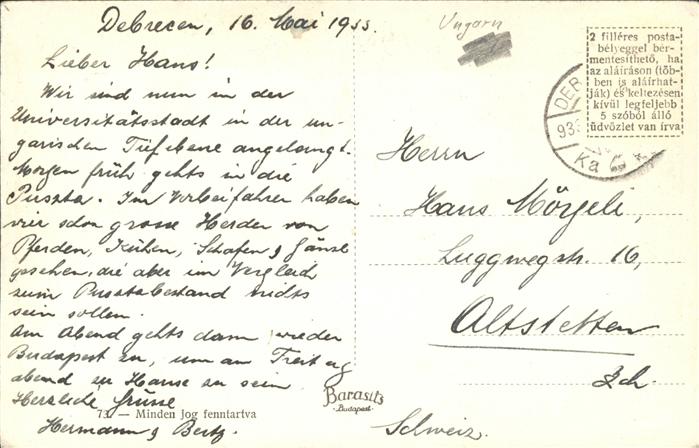 Debrecen, 16. Mai 1933.
Ungarn
Lieber Hans!
Wir sind nun in der
Universitätsstadt in der un-
garischen Tiefebene angelangt.
Morgen früh gehts in die
Puszta. Im Vorbeifahren haben
wir schon grosse Herden von
Pferden, Kühen, Schafen & Gänse
gesehen, die aber im Vergleich
zum Pusztabestand nichts
sein sollen.
Am Abend gehts dann wieder
Budapest zu, um am Freitag
abend zu Hause zu sein.
Herzliche Grüsse
Hermann &
73 — Minden jog fenntartva
Barasits
Budapest
2 filléres posta-
bélyeggel bér-
mentesíthető, ha
az aláíráson (töb-
ben is aláírhat-
ják) és keltezésen
kívül legfeljebb
5 szóból álló
üdvözlet van írva
DEB
933
Herrn
Hans Mörgeli,
Luggwegstr. 16,
Altstetten
Zch.
Schweiz.